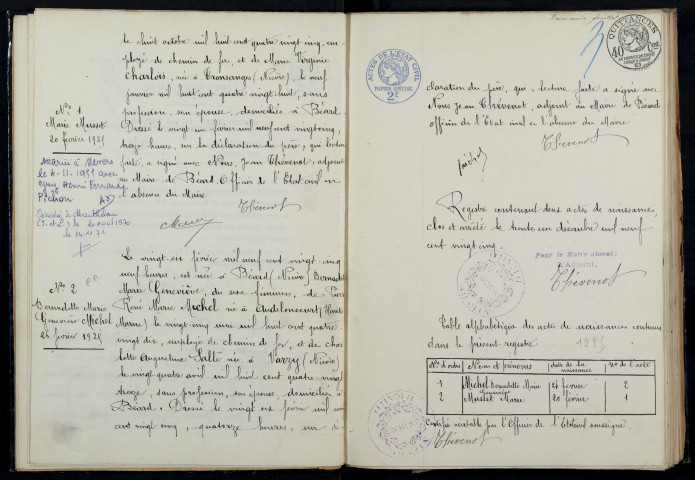 le huit octobre mil huit cent quatre vingt cinq, em-
ployé de chemin de fer, et de Marie Virginie
Charlois, née à Tronsanges (Nièvre), le neuf
janvier mil huit cent quatre vingt huit, sans
profession, son épouse, domiciliés à Béard.
Dressé le vingt un février mil neuf cent vingt cinq,
treize heures, sur la déclaration du père, qui, lecture
faite, a signé avec Nous, Jean Thévenot, adjoint
au Maire de Béard, Officier de l'Etat civil en
l'absence du Maire
Thévenot
N° 1
Marie Musset
20 février 1925
Mariée à Nevers
le 4-11-1951 avec
Henri Fernand
Pichon
le 20 août 1970
le 14.11.71
Le vingt six février mil neuf cent vingt cinq
neuf heures, est née à Béard (Nièvre) Bernadette
Marie Geneviève, du sexe féminin, de
René Marie Michel né à Audeloncourt (Haute
Marne) le vingt cinq mai mil huit cent quatre
vingt dix, employé de chemin de fer, et de Char
lotte Augustine Sallé née à Varzy (Nièvre)
le vingt quatre avril mil huit cent quatre vingt
treize, sans profession, son épouse, domiciliés à
Béard. Dressé le vingt six février mil neuf
cent vingt cinq, quatorze heures, sur dé-
N° 2
Bernadette Marie
Geneviève Michel
26 février 1925
ACTES DE L'ETAT CIVIL
PAPIER SPÉCIAL
2F
3
QUITTANCES
40 Cent
claration du père, qui, lecture faite a signé avec
Nous Jean Thévenot, adjoint au Maire de Béard
officier de l'Etat civil en l'absence du Maire
Thévenot
Registre contenant deux actes de naissance,
clos et arrêté le trente un décembre mil neuf
cent vingt cinq.
Pour le Maire absent:
L'Adjoint,
Thévenot
Table alphabétique des actes de naissances contenus
dans le présent registre 1925
N° d'ordre Nom et prénoms date de la naissance N° de l'acte
1 Michel Bernadette Marie Geneviève 26 février 2
2 Musset Marie 20 février 1
Certifié véritable par l'Officier de l'Etat civil soussigné.
Thévenot